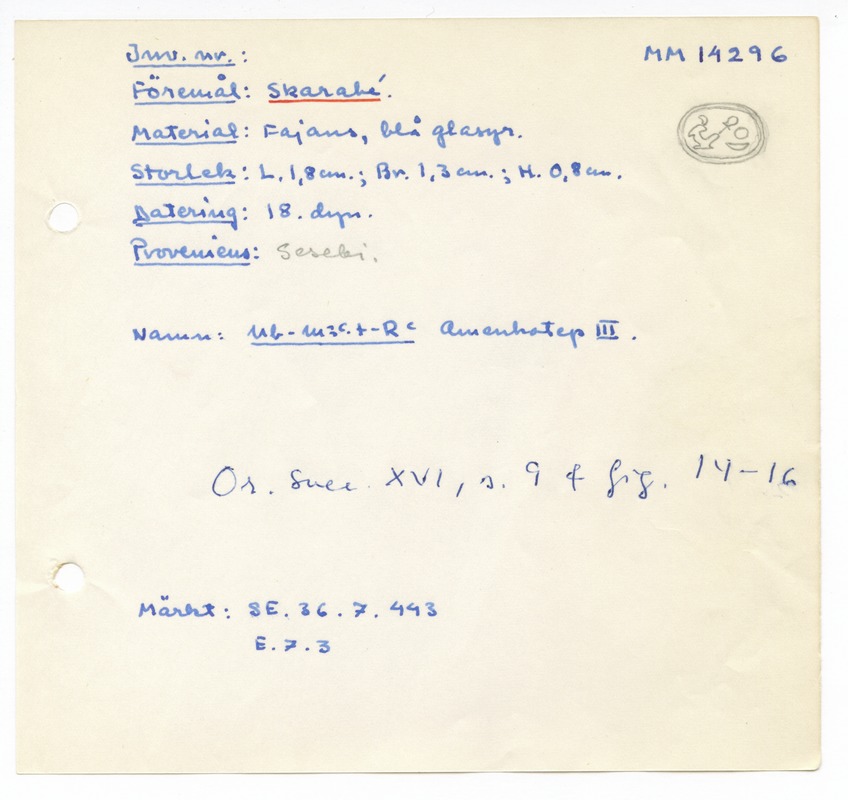 Inv. nr.: MM 14296
Föremål: Skarabé.
Material: Fajans, blå glasyr.
Storlek: L. 1,8 cm.; Br. 1,3 cm.; H. 0,8 cm.
Datering: 18. dyn.
Proveniens: Sesebi.
Namn: Nb-m3ᶜ.t-Rᶜ Amenhotep III.
Or. Suec. XVI, s. 9 & fig. 14-16
Märkt: SE. 36. 7. 443
E. 7. 3